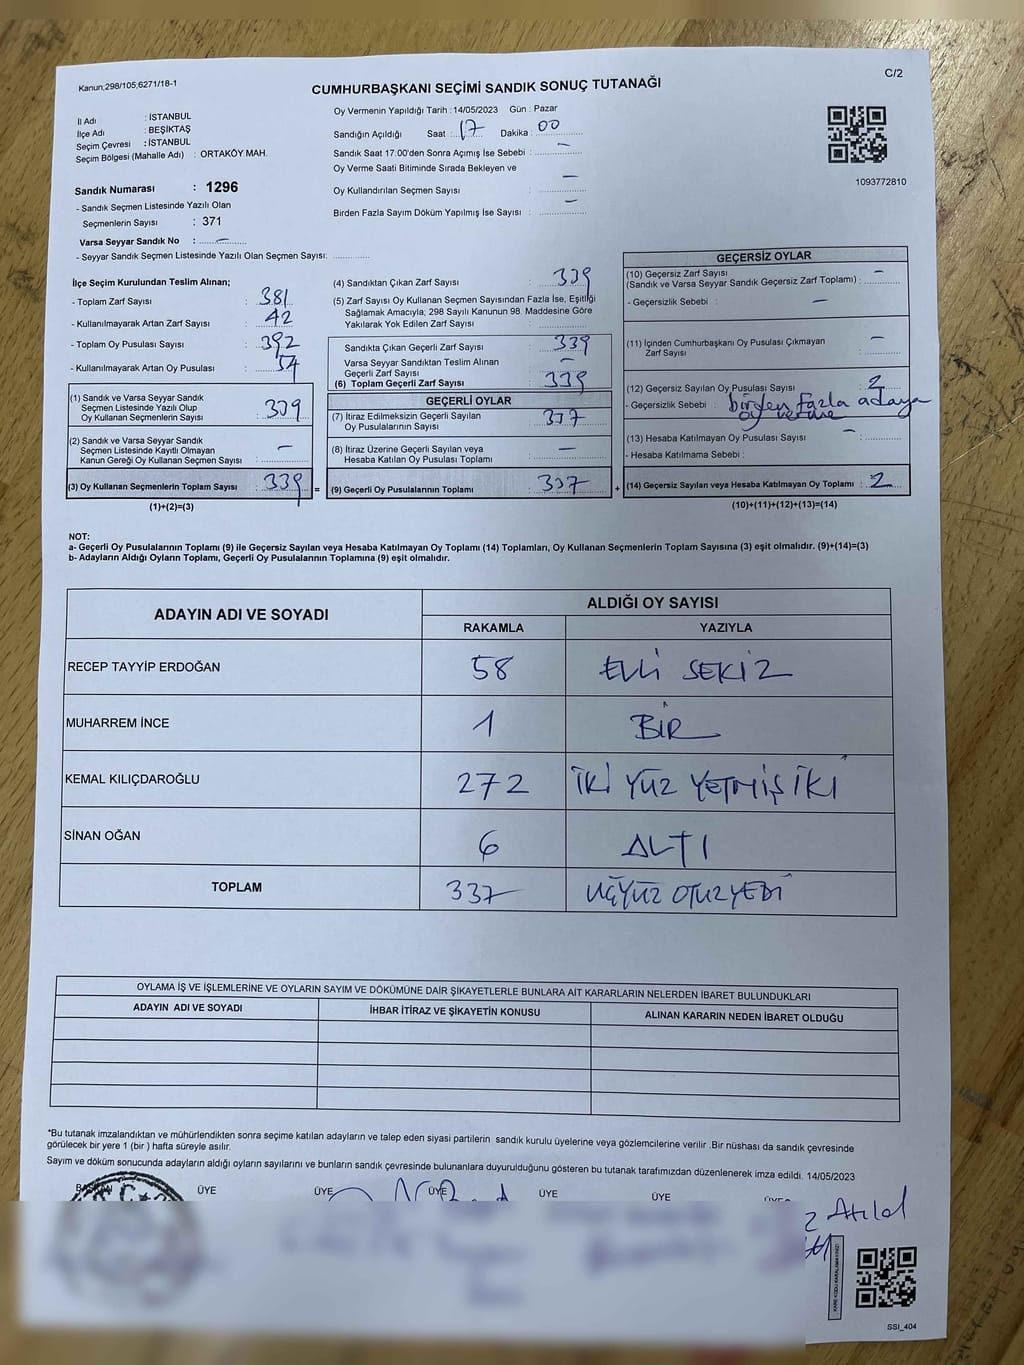 Kanun;298/105;6271/18-1
C/2
CUMHURBAŞKANI SEÇİMİ SANDIK SONUÇ TUTANAĞI
İl Adı : İSTANBUL
İlçe Adı : BEŞİKTAŞ
Seçim Çevresi : İSTANBUL
Seçim Bölgesi (Mahalle Adı) : ORTAKÖY MAH.
Sandık Numarası : 1296
- Sandık Seçmen Listesinde Yazılı Olan
Seçmenlerin Sayısı : 371
Varsa Seyyar Sandık No : –
- Seyyar Sandık Seçmen Listesinde Yazılı Olan Seçmen Sayısı: ............
Oy Vermenin Yapıldığı Tarih : 14/05/2023 Gün : Pazar
Sandığın Açıldığı Saat : 17 Dakika : 00
Sandık Saat 17:00'den Sonra Açımış İse Sebebi : –
Oy Verme Saati Bitiminde Sırada Bekleyen ve
Oy Kullandırılan Seçmen Sayısı : –
Birden Fazla Sayım Döküm Yapılmış İse Sayısı : –
1093772810
İlçe Seçim Kurulundan Teslim Alınan;
- Toplam Zarf Sayısı : 381
- Kullanılmayarak Artan Zarf Sayısı : 42
- Toplam Oy Pusulası Sayısı : 392
- Kullanılmayarak Artan Oy Pusulası : 54
(1) Sandık ve Varsa Seyyar Sandık
Seçmen Listesinde Yazılı Olup
Oy Kullanan Seçmenlerin Sayısı : 339
(2) Sandık ve Varsa Seyyar Sandık
Seçmen Listesinde Kayıtlı Olmayan
Kanun Gereği Oy Kullanan Seçmen Sayısı : –
(3) Oy Kullanan Seçmenlerin Toplam Sayısı : 339 =
(1)+(2)=(3)
(4) Sandıktan Çıkan Zarf Sayısı : 339
(5) Zarf Sayısı Oy Kullanan Seçmen Sayısından Fazla İse, Eşitliği
Sağlamak Amacıyla; 298 Sayılı Kanunun 98. Maddesine Göre
Yakılarak Yok Edilen Zarf Sayısı :
Sandıkta Çıkan Geçerli Zarf Sayısı : 339
Varsa Seyyar Sandıktan Teslim Alınan
Geçerli Zarf Sayısı : –
(6) Toplam Geçerli Zarf Sayısı : 339
GEÇERLİ OYLAR
(7) İtiraz Edilmeksizin Geçerli Sayılan
Oy Pusulalarının Sayısı : 337
(8) İtiraz Üzerine Geçerli Sayılan veya
Hesaba Katılan Oy Pusulası Toplamı : –
(9) Geçerli Oy Pusulalarının Toplamı : 337 +
GEÇERSİZ OYLAR
(10) Geçersiz Zarf Sayısı
(Sandık ve Varsa Seyyar Sandık Geçersiz Zarf Toplamı) : –
- Geçersizlik Sebebi : –
(11) İçinden Cumhurbaşkanı Oy Pusulası Çıkmayan
Zarf Sayısı : –
(12) Geçersiz Sayılan Oy Pusulası Sayısı : 2
- Geçersizlik Sebebi : birden fazla adaya
oy verme
(13) Hesaba Katılmayan Oy Pusulası Sayısı : –
- Hesaba Katılmama Sebebi :
(14) Geçersiz Sayılan veya Hesaba Katılmayan Oy Toplamı : 2
(10)+(11)+(12)+(13)=(14)
NOT:
a- Geçerli Oy Pusulalarının Toplamı (9) ile Geçersiz Sayılan veya Hesaba Katılmayan Oy Toplamı (14) Toplamları, Oy Kullanan Seçmenlerin Toplam Sayısına (3) eşit olmalıdır. (9)+(14)=(3)
b- Adayların Aldığı Oyların Toplamı, Geçerli Oy Pusulalarının Toplamına (9) eşit olmalıdır.
ADAYIN ADI VE SOYADI
ALDIĞI OY SAYISI
RAKAMLA YAZIYLA
RECEP TAYYİP ERDOĞAN 58 ELLİ SEKİZ
MUHARREM İNCE 1 BİR
KEMAL KILIÇDAROĞLU 272 İKİ YÜZ YETMİŞ İKİ
SİNAN OĞAN 6 ALTI
TOPLAM 337 ÜÇYÜZ OTUZYEDİ
OYLAMA İŞ VE İŞLEMLERİNE VE OYLARIN SAYIM VE DÖKÜMÜNE DAİR ŞİKAYETLERLE BUNLARA AİT KARARLARIN NELERDEN İBARET BULUNDUKLARI
ADAYIN ADI VE SOYADI İHBAR İTİRAZ VE ŞİKAYETİN KONUSU ALINAN KARARIN NEDEN İBARET OLDUĞU
*Bu tutanak imzalandıktan ve mühürlendikten sonra seçime katılan adayların ve talep eden siyasi partilerin sandık kurulu üyelerine veya gözlemcilerine verilir .Bir nüshası da sandık çevresinde
görülecek bir yere 1 (bir ) hafta süreyle asılır.
Sayım ve döküm sonucunda adayların aldığı oyların sayılarını ve bunların sandık çevresinde bulunanlara duyurulduğunu gösteren bu tutanak tarafımızdan düzenlenerek imza edildi. 14/05/2023
BAŞKAN ÜYE ÜYE ÜYE ÜYE ÜYE ÜYE
SSI_404